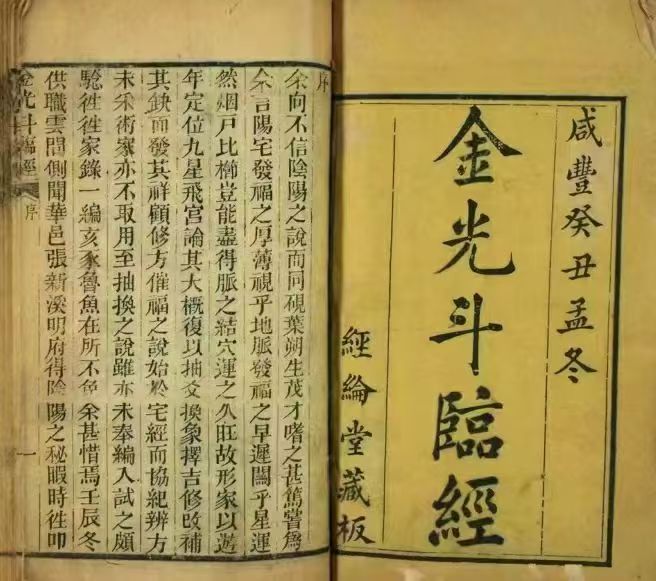 咸豐癸丑孟冬
金光斗臨經
經綸堂藏板
序
余向不信陰陽之說而同硯葉朔生茂才嗜之甚篤嘗爲
余言陽宅發福之厚薄視乎地脈發福之早遲關乎星運
然烟戶比櫛豈能盡得脈之結穴運之久旺故形家以遊
年定位九星飛宮論其大概復以抽爻換象擇吉修改補
其缺而發其祥顧修方催福之說始於宅經而協紀辨方
未采術家亦不取用至抽換之說雖亦未奉編入試之頗
驗徃徃家錄一編亥豕魯魚在所不免余甚惜焉壬辰冬
供職雲間側聞華邑張新溪明府得陰陽之秘暇時徃叩
金光斗臨經 序 一